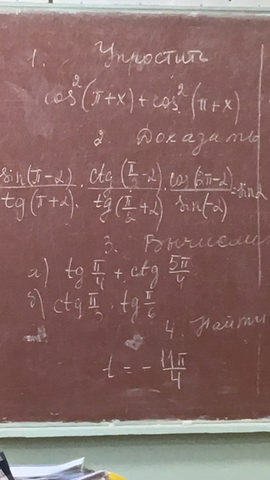 1. Упростить
cos²(π+x)+cos²(π+x)
2. Доказать
sin(π-α)/tg(π+α) · ctg(π/2-α)/tg(π/2+α) · cos(6π-α)/sin(-α) = sinα
3. Вычисли
а) tg π/4 + ctg 5π/4
б) ctg π/3 · tg π/6
4. Найти
t = - 11π/4